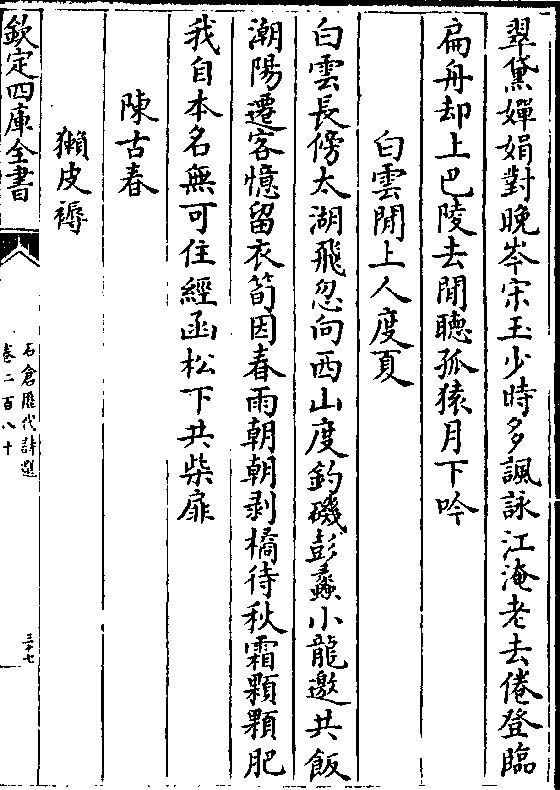 翠黛嬋娟對晚岑宋玉少時多諷詠江淹老去倦登臨
扁舟却上巴陵去閒聽孤猿月下吟
白雲閒上人度夏
白雲長傍太湖飛忽向西山度釣磯彭蠡小龍邀共飯
潮陽遷客憶留衣筍因春雨朝朝剥橘待秋霜顆顆肥
我自本名無可住經函松下共柴扉
陳古春
獺皮褥
欽定四庫全書
石倉歷代詩選
卷二百八十
三十七